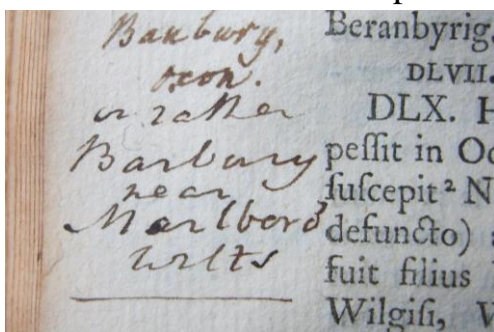 Banbury,
oxon.
or rather
Barbury
near
Marlboro
wilts
Beranbyrig.
DLVII.
DLX. H
peſſit in Oc
ſuſcepit² N
defuncto)
fuit filius
Wilgiſi, V